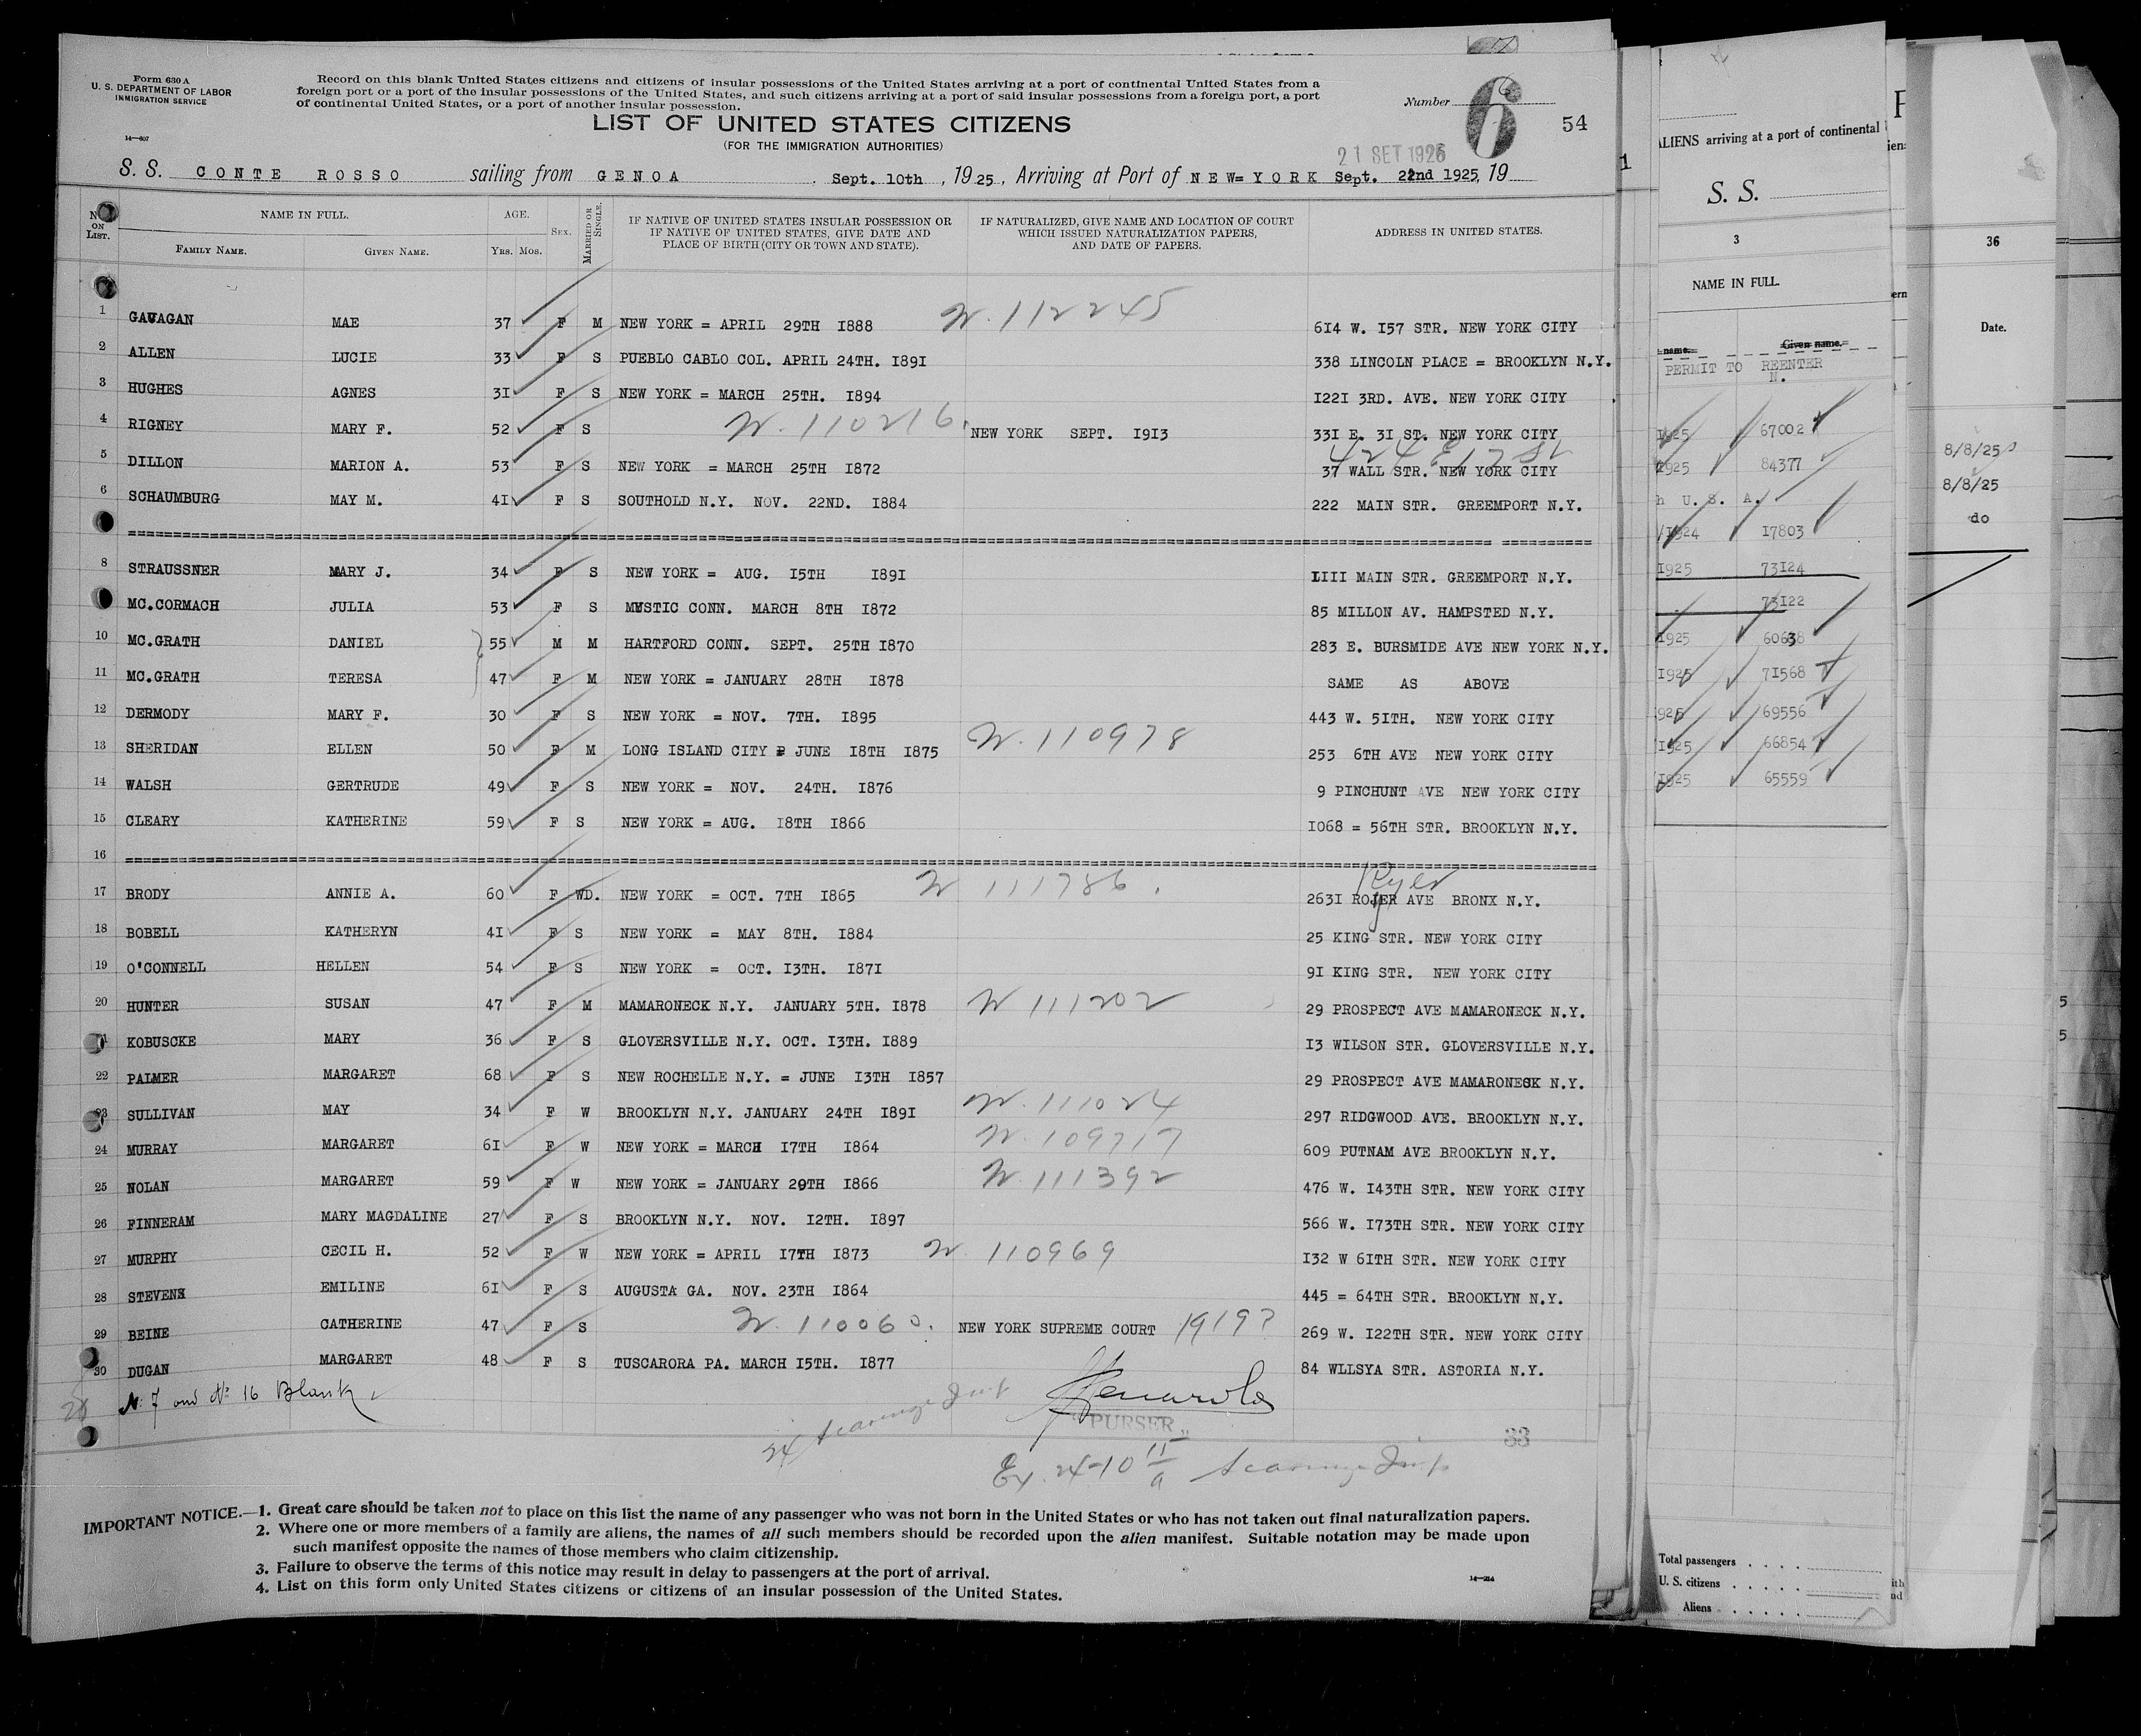 Form 630 A
U. S. DEPARTMENT OF LABOR
IMMIGRATION SERVICE
14—607
Record on this blank United States citizens and citizens of insular possessions of the United States arriving at a port of continental United States from a
foreign port or a port of the insular possessions of the United States, and such citizens arriving at a port of said insular possessions from a foreign port, a port
of continental United States, or a port of another insular possession.
Number 6
6 54
LIST OF UNITED STATES CITIZENS
(FOR THE IMMIGRATION AUTHORITIES)
21 SET 1926
S. S. CONTE ROSSO sailing from GENOA, Sept. 10th, 1925, Arriving at Port of NEW=YORK Sept. 22nd 1925, 19
No. ON LIST. NAME IN FULL. AGE. SEX. MARRIED OR SINGLE. IF NATIVE OF UNITED STATES INSULAR POSSESSION OR IF NATIVE OF UNITED STATES, GIVE DATE AND PLACE OF BIRTH (CITY OR TOWN AND STATE). IF NATURALIZED, GIVE NAME AND LOCATION OF COURT WHICH ISSUED NATURALIZATION PAPERS, AND DATE OF PAPERS. ADDRESS IN UNITED STATES.
FAMILY NAME. GIVEN NAME. YRS. MOS.
1 GAVAGAN MAE 37 F M NEW YORK = APRIL 29TH I888 N. 112245 6I4 W. I57 STR. NEW YORK CITY
2 ALLEN LUCIE 33 F S PUEBLO CABLO COL. APRIL 24TH. I89I 338 LINCOLN PLACE = BROOKLYN N.Y.
3 HUGHES AGNES 3I F S NEW YORK = MARCH 25TH. I894 I22I 3RD. AVE. NEW YORK CITY
4 RIGNEY MARY F. 52 F S N. 110216. NEW YORK SEPT. I9I3 33I E. 3I ST. NEW YORK CITY
424 E 17 St
5 DILLON MARION A. 53 F S NEW YORK = MARCH 25TH I872 37 WALL STR. NEW YORK CITY
6 SCHAUMBURG MAY M. 4I F S SOUTHOLD N.Y. NOV. 22ND. I884 222 MAIN STR. GREEMPORT N.Y.
8 STRAUSSNER MARY J. 34 F S NEW YORK = AUG. I5TH I89I IIII MAIN STR. GREEMPORT N.Y.
MC.CORMACH JULIA 53 F S MYSTIC CONN. MARCH 8TH I872 85 MILLON AV. HAMPSTED N.Y.
10 MC.GRATH DANIEL 55 M M HARTFORD CONN. SEPT. 25TH I870 283 E. BURSMIDE AVE NEW YORK N.Y.
11 MC.GRATH TERESA 47 F M NEW YORK = JANUARY 28TH I878 SAME AS ABOVE
12 DERMODY MARY F. 30 F S NEW YORK = NOV. 7TH. I895 443 W. 5ITH. NEW YORK CITY
13 SHERIDAN ELLEN 50 F M LONG ISLAND CITY = JUNE I8TH I875 N. 110978 253 6TH AVE NEW YORK CITY
14 WALSH GERTRUDE 49 F S NEW YORK = NOV. 24TH. I876 9 PINCHUNT AVE NEW YORK CITY
15 CLEARY KATHERINE 59 F S NEW YORK = AUG. I8TH I866 I068 = 56TH STR. BROOKLYN N.Y.
16
Ryer
17 BRODY ANNIE A. 60 F WD. NEW YORK = OCT. 7TH I865 N 111786. 263I ROJER AVE BRONX N.Y.
18 BOBELL KATHERYN 4I F S NEW YORK = MAY 8TH. I884 25 KING STR. NEW YORK CITY
19 O'CONNELL HELLEN 54 F S NEW YORK = OCT. I3TH. I87I 9I KING STR. NEW YORK CITY
20 HUNTER SUSAN 47 F M MAMARONECK N.Y. JANUARY 5TH. I878 N 111202 29 PROSPECT AVE MAMARONECK N.Y.
21 KOBUSCKE MARY 36 F S GLOVERSVILLE N.Y. OCT. I3TH. I889 I3 WILSON STR. GLOVERSVILLE N.Y.
22 PALMER MARGARET 68 F S NEW ROCHELLE N.Y. = JUNE I3TH I857 29 PROSPECT AVE MAMARONECK N.Y.
23 SULLIVAN MAY 34 F W BROOKLYN N.Y. JANUARY 24TH I89I N. 111024 297 RIDGWOOD AVE. BROOKLYN N.Y.
24 MURRAY MARGARET 6I F W NEW YORK = MARCH I7TH I864 N. 109717 609 PUTNAM AVE BROOKLYN N.Y.
25 NOLAN MARGARET 59 F W NEW YORK = JANUARY 29TH I866 N. 111392 476 W. I43TH STR. NEW YORK CITY
26 FINNERAM MARY MAGDALINE 27 F S BROOKLYN N.Y. NOV. I2TH. I897 566 W. I73TH STR. NEW YORK CITY
27 MURPHY CECIL H. 52 F W NEW YORK = APRIL I7TH I873 N 110969 I32 W 6ITH STR. NEW YORK CITY
28 STEVENS EMILINE 6I F S AUGUSTA GA. NOV. 23TH I864 445 = 64TH STR. BROOKLYN N.Y.
29 BEINE CATHERINE 47 F S N. 110060. NEW YORK SUPREME COURT 1919? 269 W. I22TH STR. NEW YORK CITY
30 DUGAN MARGARET 48 F S TUSCARORA PA. MARCH I5TH. I877 84 WLLSYA STR. ASTORIA N.Y.
N: 7 and No 16 Blank
28
PURSER
33
IMPORTANT NOTICE.—1. Great care should be taken not to place on this list the name of any passenger who was not born in the United States or who has not taken out final naturalization papers.
2. Where one or more members of a family are aliens, the names of all such members should be recorded upon the alien manifest. Suitable notation may be made upon
such manifest opposite the names of those members who claim citizenship.
3. Failure to observe the terms of this notice may result in delay to passengers at the port of arrival.
4. List on this form only United States citizens or citizens of an insular possession of the United States.
14—214
1
ALIENS arriving at a port of continental
S. S.
3
NAME IN FULL.
name. Given name.
PERMIT TO REENTER
N.
1925 67002
1925 84377
U. S. A.
/1924 I7803
1925 73I24
73I22
1925 60638
1925 7I568
925 69556
1925 66854
1925 65559
Total passengers
U. S. citizens
Aliens
36
Date.
8/8/25
8/8/25
do
5
5